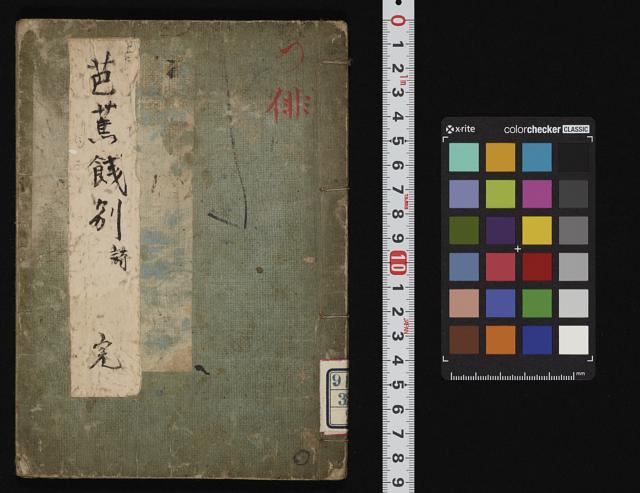 芭蕉餞別 詩 完
つ
俳
0
1
2
1m
3
4
5
6
7
8
9
10
1
2
3
JAPAN
4
5
6
7
8
9
x-rite
colorchecker CLASSIC
mm